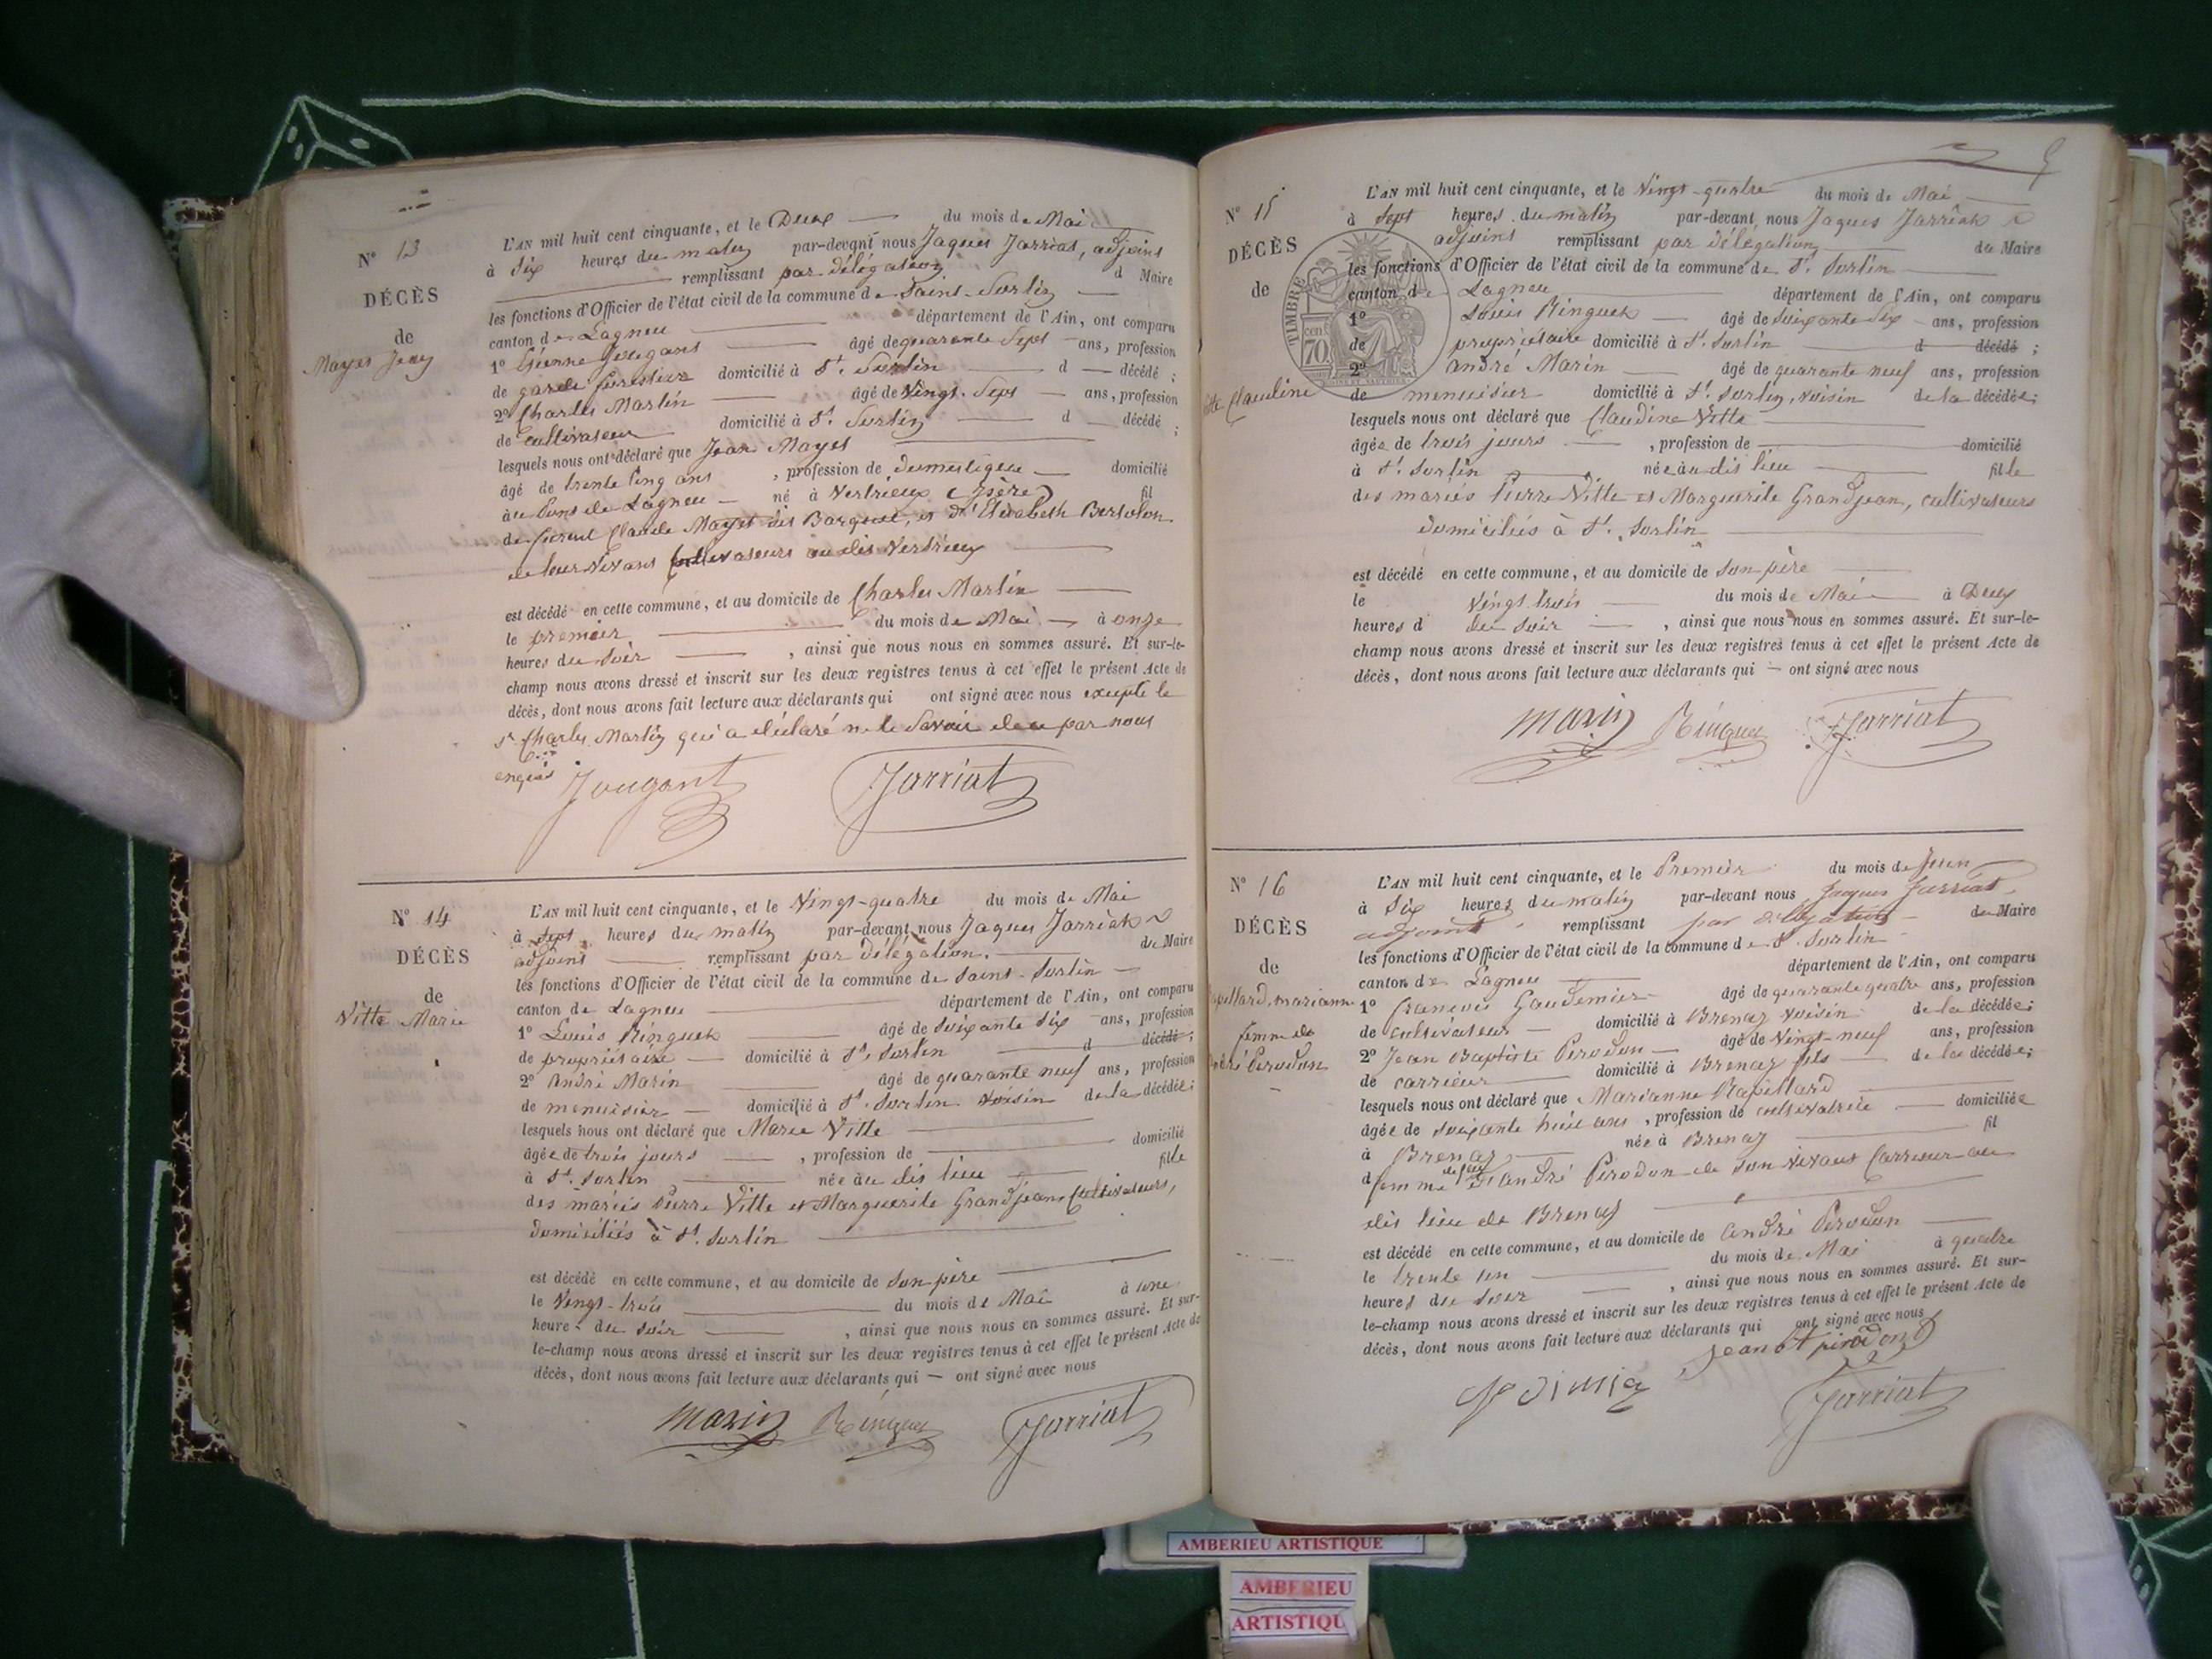 N° 13
DÉCÈS
de
Mayet Jean
L'AN mil huit cent cinquante, et le Deux du mois de Mai
à Six heures du matin par-devant nous Jaques Jarriat, adjoint
remplissant par délégation d Maire
les fonctions d'Officier de l'état civil de la commune de Saint-Sorlin
canton de Lagneu département de l'Ain, ont comparu
1° Etienne âgé de quarante Sept ans, profession
de garde forestier domicilié à St. Sorlin d décédé ;
2° Charles Martin âgé de Vingt-Sept ans, profession
de Cultivateur domicilié à St. Sorlin d décédé ;
lesquels nous ont déclaré que Jean Mayet
âgé de trente Cinq ans , profession de domestique domicilié
au Pont de Lagneu né à Vertrieux (Isère) fil
de Claude Mayet dit et d'Elisabeth Bertolon
de leur vivant Cultivateurs au dit Vertrieux
est décédé en cette commune, et au domicile de Charles Martin
le premier du mois de Mai à onze
heures du Soir , ainsi que nous nous en sommes assuré. Et sur-le-
champ nous avons dressé et inscrit sur les deux registres tenus à cet effet le présent Acte de
décès, dont nous avons fait lecture aux déclarants qui ont signé avec nous excepté le
Sr Charles Martin qui a déclaré ne le Savoir de ce par nous
enquis
Jougant Jarriat
N° 14
DÉCÈS
de
Vitte Marie
L'AN mil huit cent cinquante, et le Vingt-quatre du mois de Mai
à Sept heures du matin par-devant nous Jaques Jarriat
adjoint remplissant par délégation du Maire
les fonctions d'Officier de l'état civil de la commune de Saint-Sorlin
canton de Lagneu département de l'Ain, ont comparu
1° Louis Ringuet âgé de Soixante Six ans, profession
de propriétaire domicilié à St. Sorlin d décédé ;
2° André Marin âgé de quarante neuf ans, profession
de menuisier domicilié à St. Sorlin voisin de la décédée ;
lesquels nous ont déclaré que Marie Vitte
âgée de trois jours , profession de domicilié
à St. Sorlin née au dit lieu fille
des mariés Pierre Vitte et Marguerite Grandjean Cultivateurs,
domiciliés à St. Sorlin
est décédé en cette commune, et au domicile de Son père
le Vingt-trois du mois de Mai à une
heure du Soir , ainsi que nous nous en sommes assuré. Et sur-
le-champ nous avons dressé et inscrit sur les deux registres tenus à cet effet le présent Acte de
décès, dont nous avons fait lecture aux déclarants qui ont signé avec nous
Marin Ringuet Jarriat
N° 15
DÉCÈS
de
Claudine
TIMBRE
70
L'AN mil huit cent cinquante, et le Vingt-quatre du mois de Mai
à Sept heures du matin par-devant nous Jaques Jarriat
adjoint remplissant par délégation du Maire
les fonctions d'Officier de l'état civil de la commune de St. Sorlin
canton de Lagneu département de l'Ain, ont comparu
1° Louis Ringuet âgé de Soixante Six ans, profession
de propriétaire domicilié à St. Sorlin d décédé ;
2° André Marin âgé de quarante neuf ans, profession
de menuisier domicilié à St. Sorlin, voisin de la décédée ;
lesquels nous ont déclaré que Claudine Vitte
âgée de trois jours , profession de domicilié
à St. Sorlin née au dit lieu fille
des mariés Pierre Vitte et Marguerite Grandjean, cultivateurs
domiciliés à St. Sorlin
est décédé en cette commune, et au domicile de Son père
le Vingt trois du mois de Mai à Deux
heures d du Soir , ainsi que nous nous en sommes assuré. Et sur-le-
champ nous avons dressé et inscrit sur les deux registres tenus à cet effet le présent Acte de
décès, dont nous avons fait lecture aux déclarants qui ont signé avec nous
Marin Ringuet Jarriat
N° 16
DÉCÈS
de
marianne
femme de
Perodon
L'AN mil huit cent cinquante, et le Premier du mois de Juin
à Six heures du matin par-devant nous Jaques Jarriat
adjoint remplissant par délégation du Maire
les fonctions d'Officier de l'état civil de la commune de St. Sorlin
canton de Lagneu département de l'Ain, ont comparu
1° François Gaudemier âgé de quarante quatre ans, profession
de cultivateur domicilié à Brenaz voisin de la décédée ;
2° Jean Baptiste Perodon âgé de Vingt-neuf ans, profession
de carrieur domicilié à Brenaz fils de la décédée ;
lesquels nous ont déclaré que Marianne Rapillard
âgée de soixante huit ans , profession de cultivatrice domiciliée
à Brenaz née à Brenaz fil
d femme André Perodon de Son vivant Carrieur au
dit lieu de Brenaz
est décédé en cette commune, et au domicile de André Perodon
le trente un du mois de Mai à quatre
heures du Soir , ainsi que nous nous en sommes assuré. Et sur-
le-champ nous avons dressé et inscrit sur les deux registres tenus à cet effet le présent Acte de
décès, dont nous avons fait lecture aux déclarants qui ont signé avec nous
Jean Bt perodon
Jarriat
AMBERIEU ARTISTIQUE
AMBERIEU
ARTISTIQU